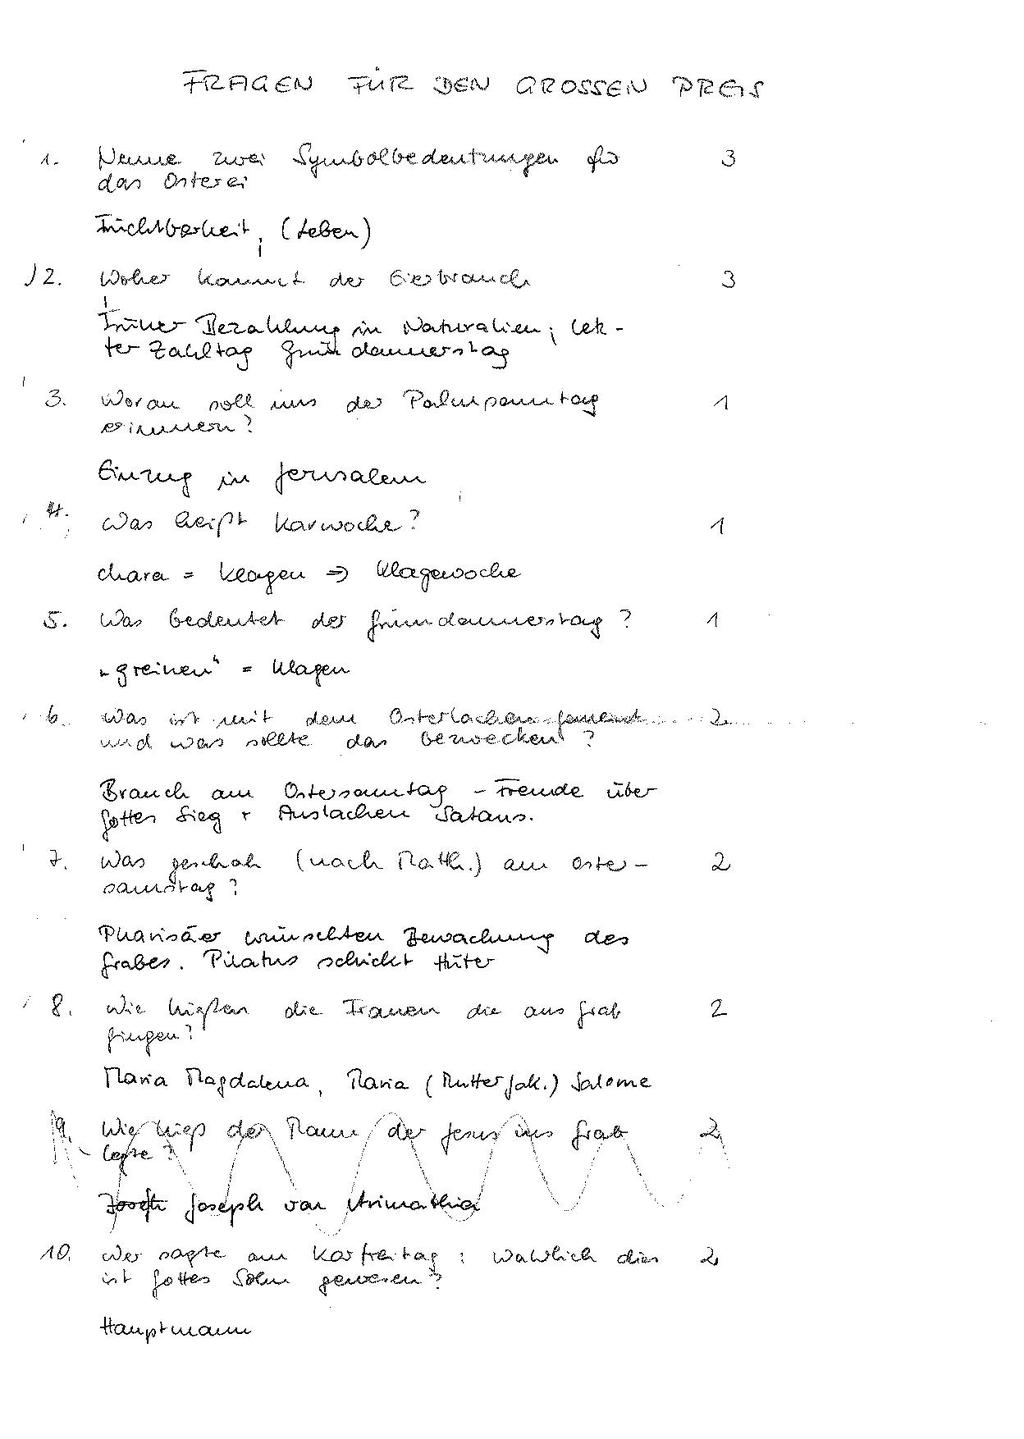 FRAGEN FÜR DEN GROSSEN PREIS
1. Nenne zwei Symbolbedeutungen für 3
das Osterei
Fruchtbarkeit, (Leben)
2. Woher kommt der Eierbrauch 3
Früher Bezahlung in Naturalien; letz-
ter Zahltag Gründonnerstag
3. Woran soll uns der Palmsonntag 1
erinnern?
Einzug in Jerusalem
4. Was heißt Karwoche? 1
chara = Klagen => Klagewoche
5. Was bedeutet der Gründonnerstag? 1
"greinen" = Klagen
6. Was ist mit dem Osterlachen gemeint 2
und was sollte das bezwecken?
Brauch am Ostersonntag - Freude über
Gottes Sieg + Auslachen Satans.
7. Was geschah (nach Matth.) am Oster- 2
samstag?
Pharisäer wünschten Bewachung des
Grabes. Pilatus schickt Hüter
8. Wie hießen die Frauen die ans Grab 2
gingen?
Maria Magdalena, Maria (Mutter Jak.) Salome
9. Wie hieß der Mann, der Jesus ins Grab 2
legte?
Joseph Joseph von Arimathia
10. Wer sagte am Karfreitag: Wahrlich dies 2
ist Gottes Sohn gewesen?
Hauptmann